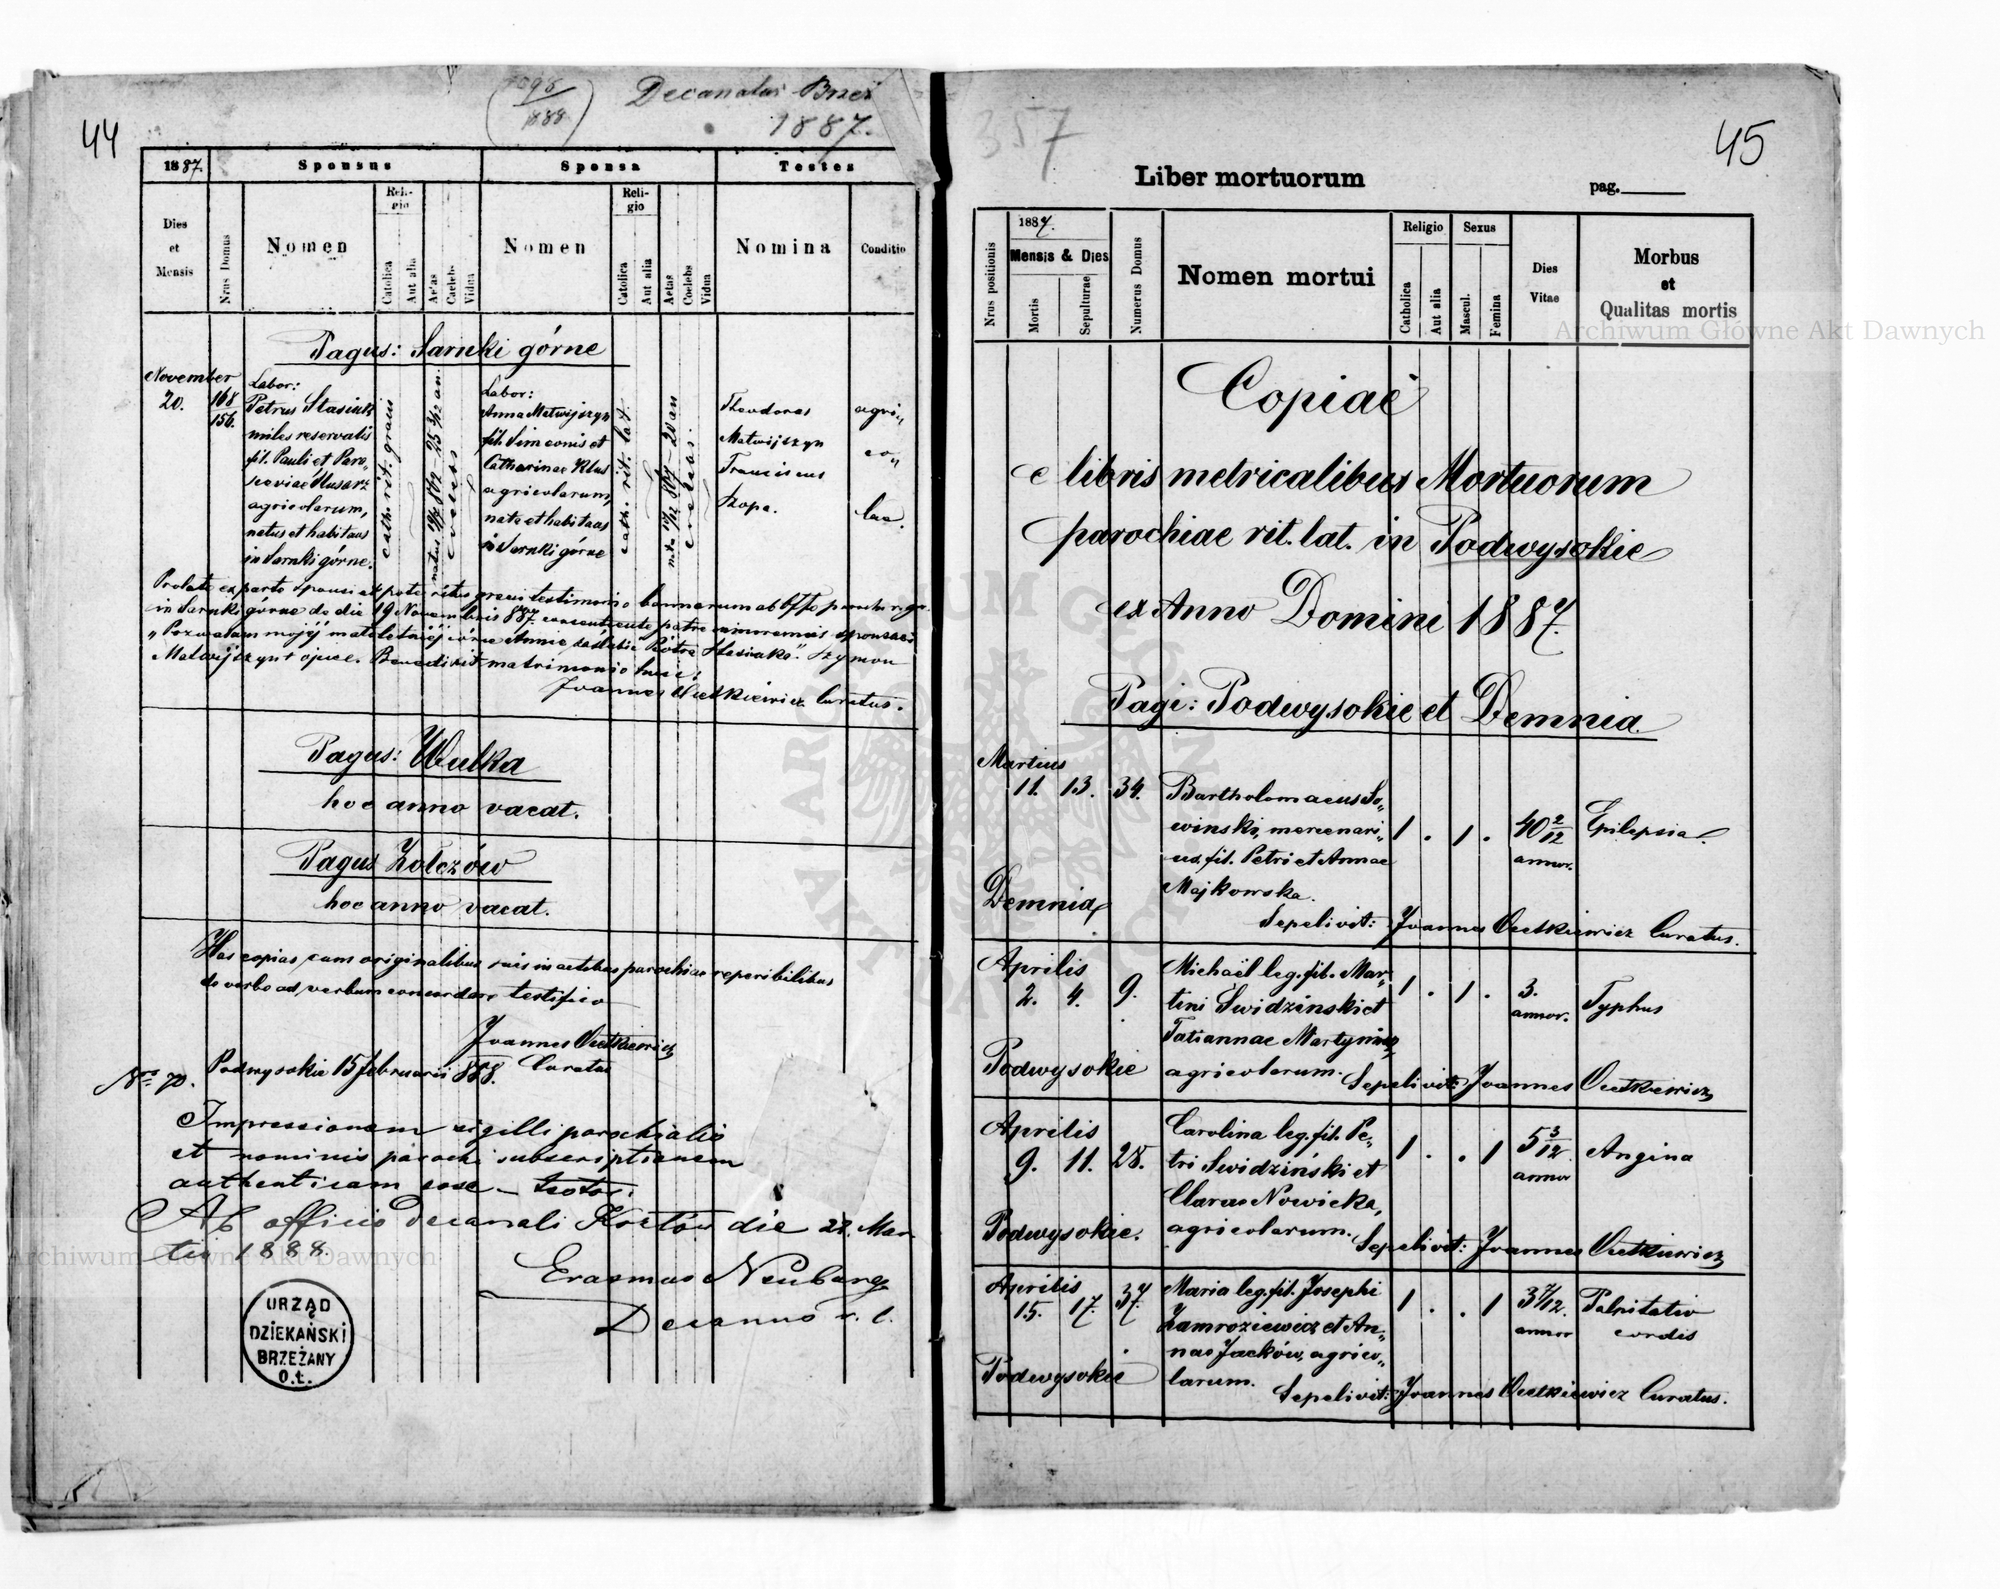 44
1098
1888
Decanatus Brzeż
1887.
1887.
Sponsus
Sponsa
Testes
Dies
et
Mensis
Nrus Domus
Nomen
Religio
Catholica
Aut alia
Aetas
Caelebs
Vidua
Nomen
Religio
Catholica
Aut alia
Aetas
Coelebs
Vidua
Nomina
Conditio
Pagus: Sarnki górne
November
20.
168
156.
Labor:
Petrus Stasiuk
miles reservatis
fil. Pauli et Para„
sceviae Husarz
agricolarum,
natus et habitans
in Sarnki górne.
cath. rit. graeci
coelebs
Labor:
Anna Matwijszyn
fil. Simeonis et
Catharinae Klus
agricolarum,
nata et habitans
in Sarnki górne
cath. rit. lat.
coelebs.
Theodorus
Matwijszyn
Franciscus
Szopa.
agri„
co„
lae.
in Sarnki górne de die 19 Novembris 887. concentiente patre minorennis sponsae:
„Pozwalam mojéj małoletniéj córce Annie zaślubić Piotra Stasiuka". Szymon
Matwijszyn ojciec. Benedixit matrimonio huic:
Joannes Ocetkiewicz Curatus.
Pagus: Wulka
hoc anno vacat.
Pagus Zołczów
hoc anno vacat.
Has copias cum originalibus suis in actibus parochiae reperibilibus
de verbo ad verbum concordare testifico
Joannes Ocetkiewicz
Podwysokie 15 februarii 888. Curatus
Nro 70.
Impressionem sigilli parochialis
et nominis parochi subscriptionem
authenticam esse – testor.
Ab officio Decanali Kozłów die 22. Mar
tii 1888.
Erasmus Neuburg
Decanus r. l.
URZĄD
DZIEKAŃSKI
BRZEŻANY
O.ł.
357
45
Liber mortuorum
pag.
Nrus positionis
1887.
Mensis & Dies
Mortis
Sepulturae
Numerus Domus
Nomen mortui
Religio
Catholica
Aut alia
Sexus
Mascul.
Femina
Dies
Vitae
Morbus
et
Qualitas mortis
Archiwum Główne Akt Dawnych
Copiae
e libris metricalibus Mortuorum
parochiae rit. lat. in Podwysokie
ex Anno Domini 1887.
Pagi: Podwysokie et Demnia.
Martius
11. 13. 34. Bartholomaeus So„
winski, mercenari„
us, fil. Petri et Annae
Majkowska.
1 . 1 . 40 2/12
annor.
Epilepsia.
Demnia
Sepelivit: Joannes Ocetkiewicz Curatus.
Aprilis
2. 4. 9. Michaël leg. fil. Mar„
tini Swidziński et
Tatiannae Martyniuk,
agricolarum.
1 . 1 . 3.
annor.
Typhus
Podwysokie
Sepelivit: Joannes Ocetkiewicz
Aprilis
9. 11. 28. Carolina leg. fil. Pe„
tri Swidziński et
Clarae Nowicka,
agricolarum.
1 . . 1 5 3/12
annor
Angina
Podwysokie.
Sepelivit: Joannes Ocetkiewicz
Aprilis
15. 17. 37. Maria leg. fil. Josephi
Zamroziewicz et An„
nae Jacków, agrico„
larum.
1 . . 1 3 7/12.
annor
Palpitatio
cordis
Podwysokie
Sepelivit: Joannes Ocetkiewicz Curatus.
Archiwum Główne Akt Dawnych